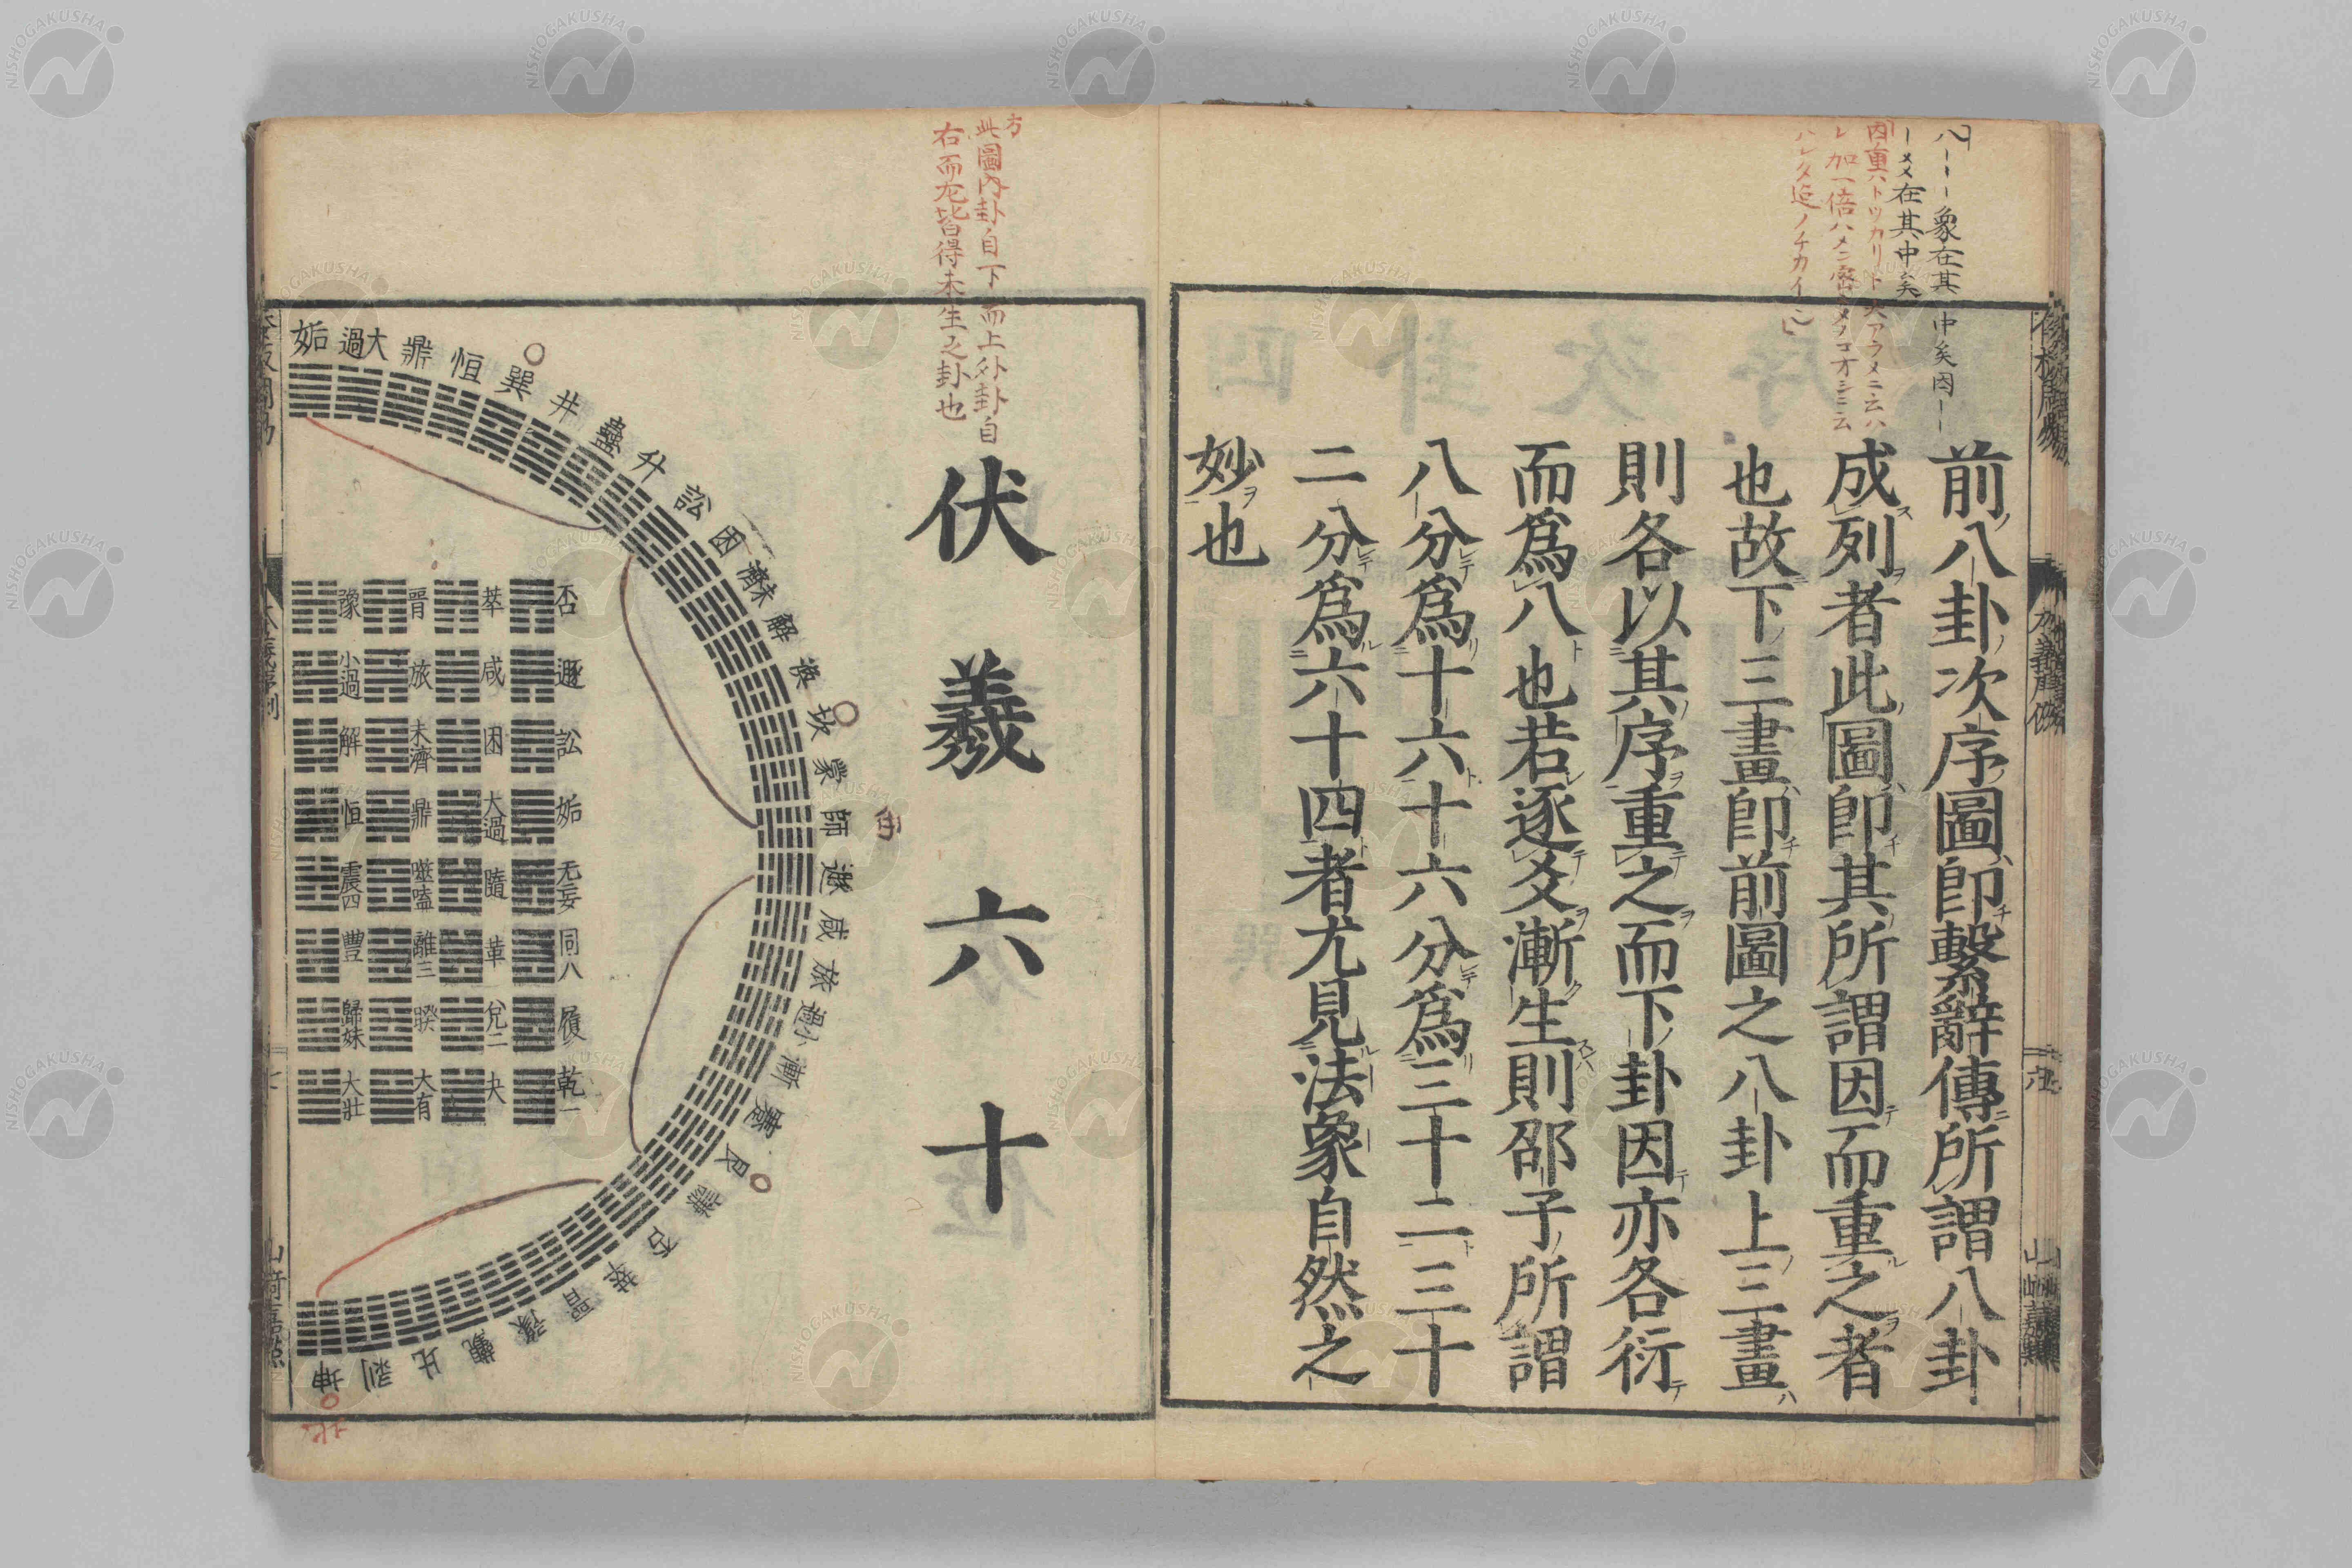 八｜｜｜象在其中矣因｜
｜メ〆在其中矣
前八卦次序圖即繫辭傳所謂八卦
成列者此圖即其所謂因而重之者
也故下三畫即前圖之八卦上三畫
則各以其序重之而下卦因亦各衍
而爲八也若逐爻漸生則邵子所謂
八分爲十六十六分爲三十二三十
二分爲六十四者尤見法象自然之
妙也
方
此圖內卦自下而上外卦自
右而左皆得未生之卦也
伏羲六十
姤 大過 鼎 恒 巽 井 蠱 升 訟 困 未濟 解 渙 坎 蒙 師 遯 咸 旅 小過 漸 蹇 艮 謙 否 萃 晉 豫 觀 比 剥 坤
西
北
否 遯 訟 姤 无妄 同人 履 乾一
萃 咸 困 大過 隨 革 兌二 夬
晉 旅 未濟 鼎 噬嗑 離三 睽 大有
豫 小過 解 恒 震四 豐 歸妹 大壯
NISHOGAKUSHA